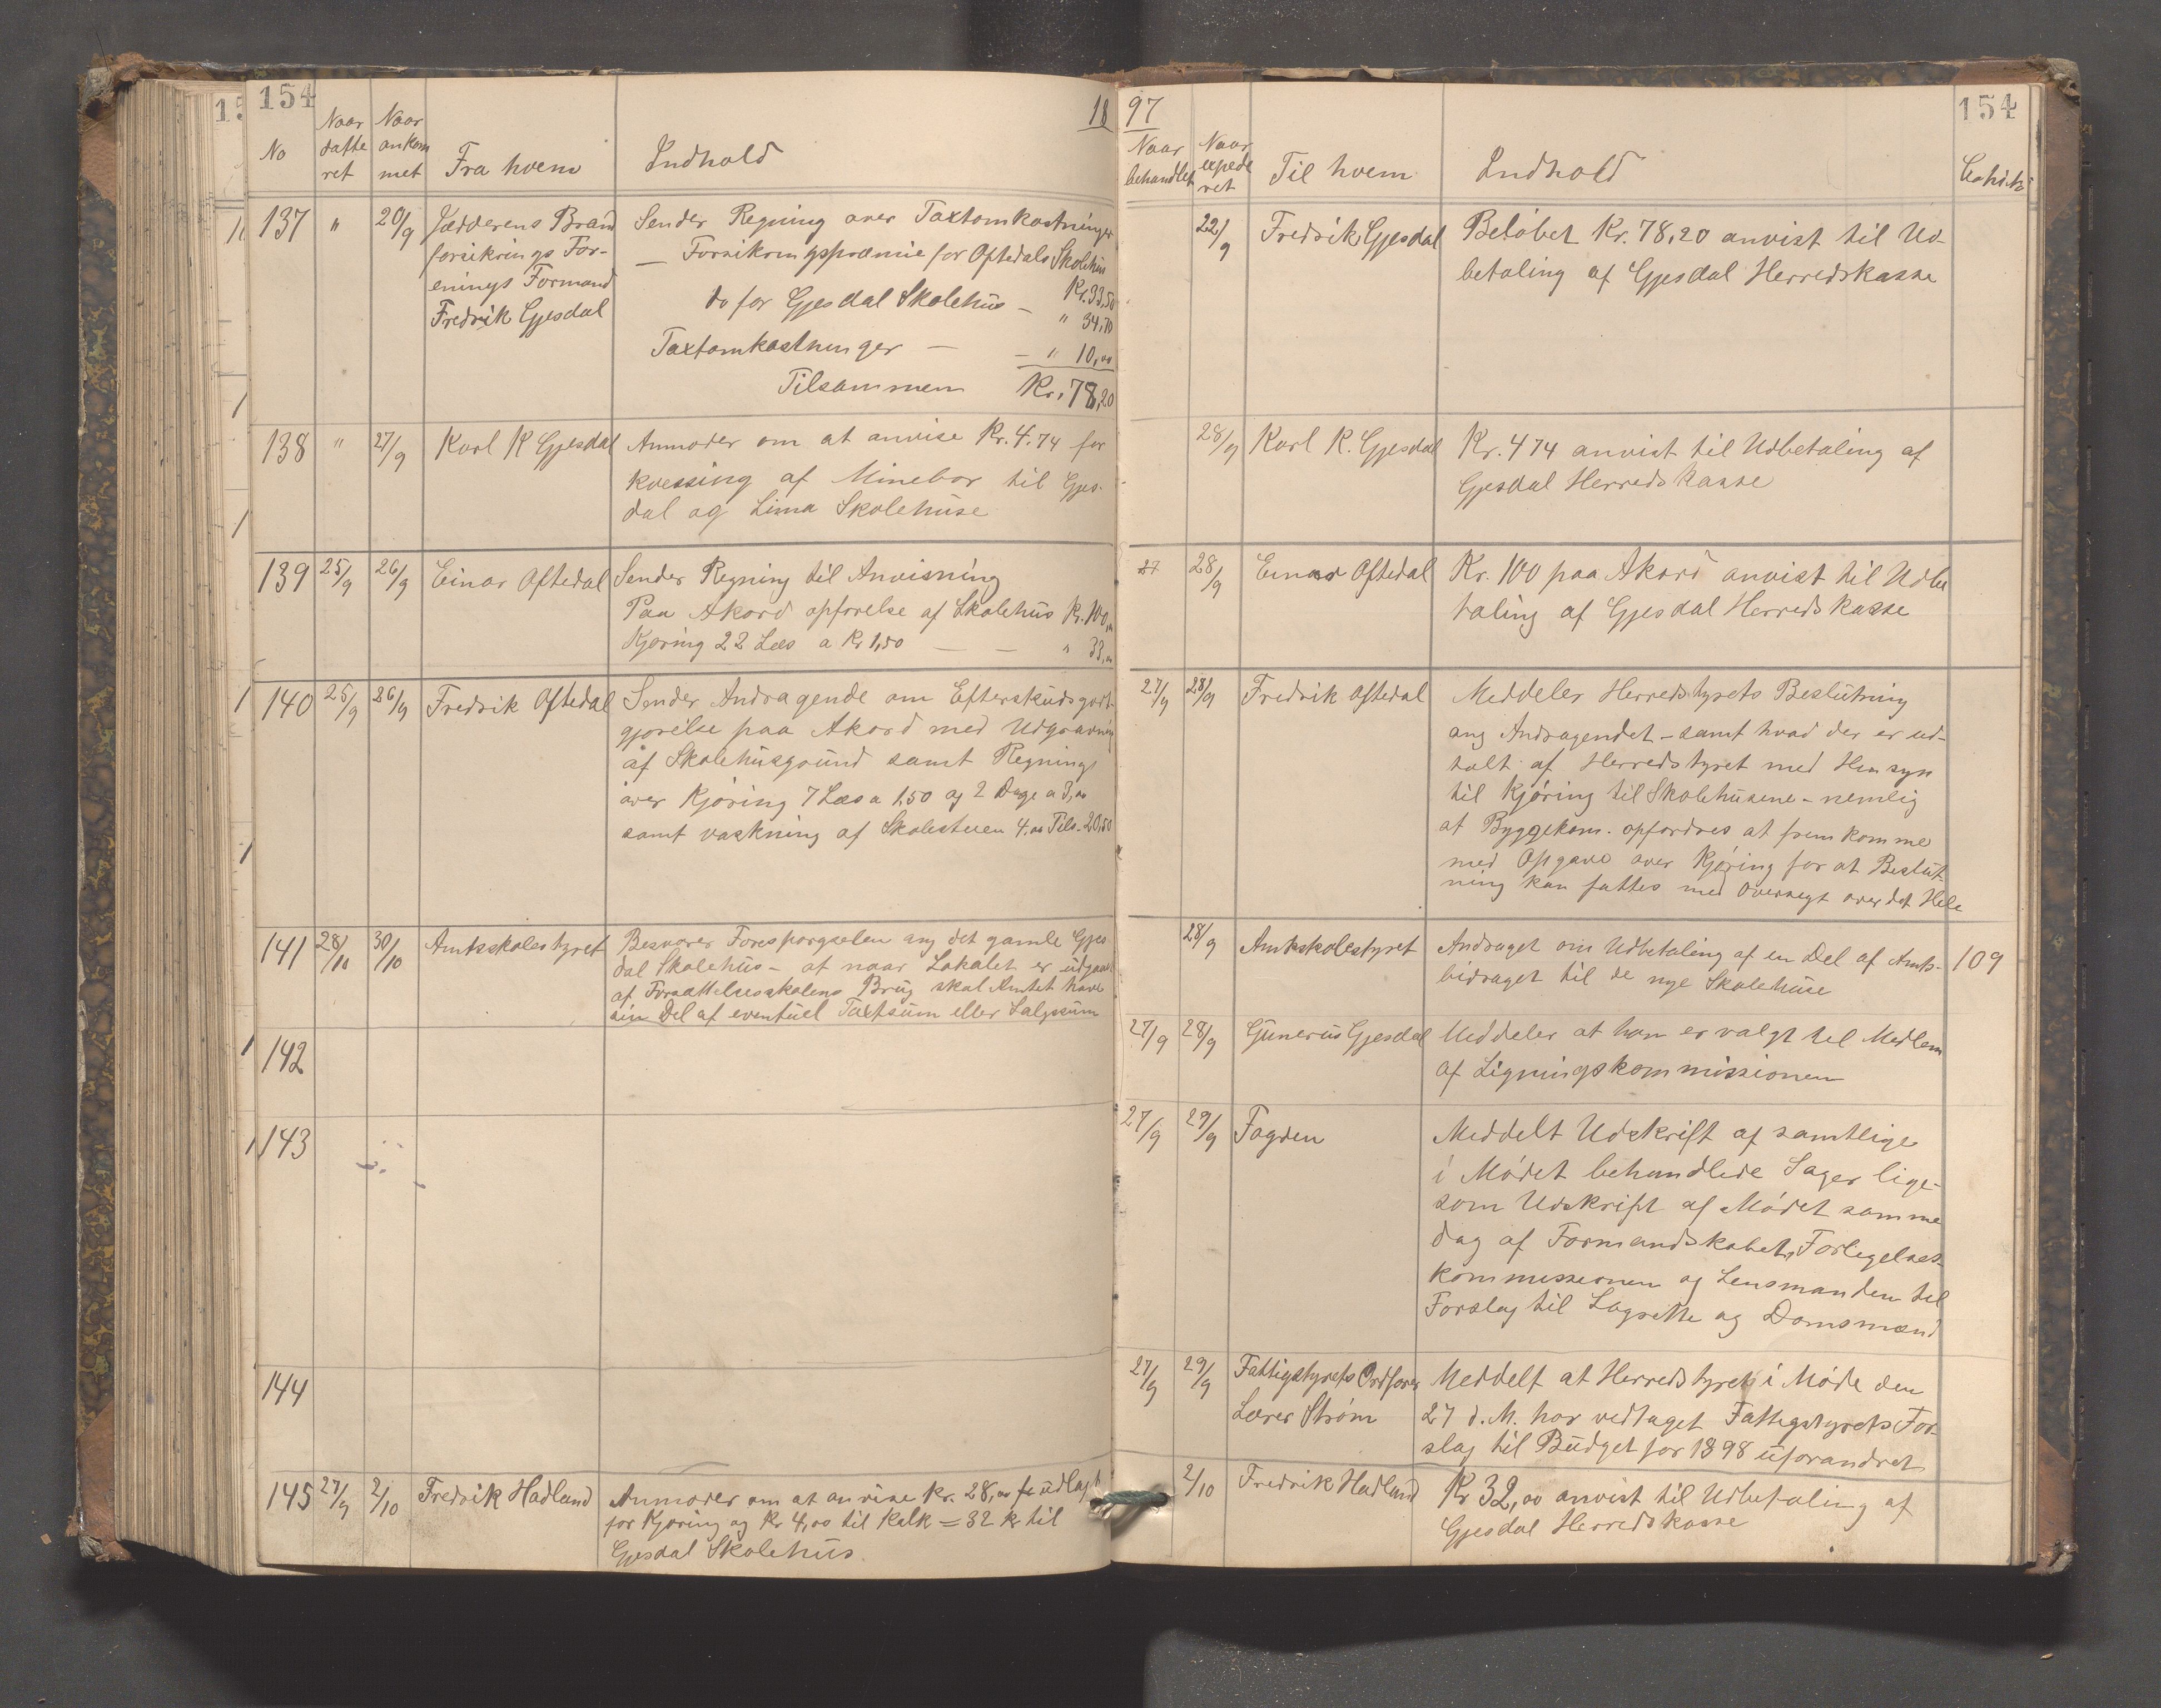 154
18
No
Naar datteret
Naar ankommet
Fra hvem
Indhold
137 " 20/9
Jædderens Brand
forsikrings For-
enings Formand
Fredrik Gjesdal
Sender Regning over Taxtomkostninger
— Forsikringspræmie for Oftedals Skolehus
Kr. 33,50
do for Gjesdal Skolehus — " 34,70
Taxtomkostninger — — " 10,00
Tilsammen Kr. 78,20
138 " 27/9
Karl K Gjesdal
Anmoder om at anvise Kr. 4.74 for
kvessing af Minebor til Gjes-
dal og Lima Skolehuse
139 25/9 26/9
Einar Oftedal
Sender Regning til Anvisning
Paa Akord opførelse af Skolehus Kr. 100,00
Kjøring 22 Læs a Kr 1,50 — — " 33,00
140 25/9 26/9
Fredrik Oftedal
Sender Andragende om Efterskudsgodt-
gjørelse paa Akord med Udgravning
af Skolehusgrund samt Regning
over Kjøring 7 Læs a 1,50 og 2 Dage a 3,00
samt vaskning af Skolestuen 4,00 Tils. 20,50
141 28/10 30/10
Amtsskolestyret
Besvarer Forespørgselen ang det gamle Gjes
dal Skolehus — at naar Lokalet er udgaaet
af Forsættelsesskolens Brug skal Amtet have
sin Del af eventuel Taxtsum eller Salgssum
142
143
144
145 27/9 2/10
Fredrik Hadland
Anmoder om at anvise Kr. 28,00 udlagt
for Kjøring og Kr 4,00 til Kalk = 32 kr til
Gjesdal Skolehus
97
154
Naar behandlet
Naar expederet
Til hvem
Indhold
22/9
Fredrik Gjesdal
Beløbet Kr. 78,20 anvist til Ud-
betaling af Gjesdal Herredskasse
28/9
Karl K. Gjesdal
Kr. 4 74 anvist til Udbetaling af
Gjesdal Herredskasse
27 28/9
Einar Oftedal
Kr. 100 paa Akord anvist til Udbe
taling af Gjesdal Herredskasse
27/9 28/9
Fredrik Oftedal
Meddeler Herredstyrets Beslutning
ang Andragendet — samt hvad der er ud-
talt af Herredstyret med Hensyn
til Kjøring til Skolehusene — nemlig
at Byggekom. opfordres at fremkomme
med Opgave over Kjøring for at Beslut-
ning kan fattes med Oversigt over det Hele
28/9
Amtsskolestyret
Andraget om Udbetaling af en Del af Amts-
bidraget til de nye Skolehuse
109
27/9 28/9
Gunerius Gjesdal
Meddeler at han er valgt til Medlem
af Ligningskommissionen
27/9 29/9
Fogden
Meddelt Udskrift af samtlige
i Mødet behandlede Sager lige-
som Udskrift af Mødet samme
dag af Formandskabet, Forligelses-
kommissionen og Lensmanden til
Forslag til Lagrette og Domsmænd
27/9 29/9
Fattigstyrets Ordfører
Lærer Strøm
Meddelt at Herredstyret i Møde den
27 d. M. har vedtaget Fattigstyrets For-
slag til Budget for 1898 uforandret
2/10
Fredrik Hadland
Kr 32,00 anvist til Udbetaling af
Gjesdal Herredskasse